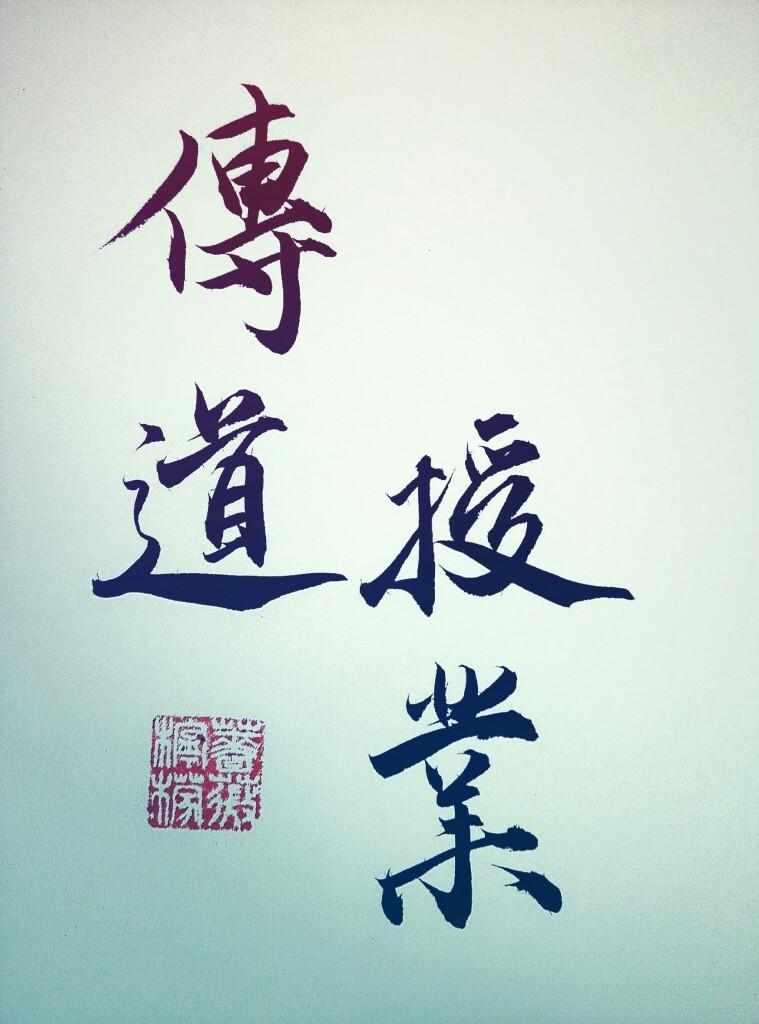 傳道
授業